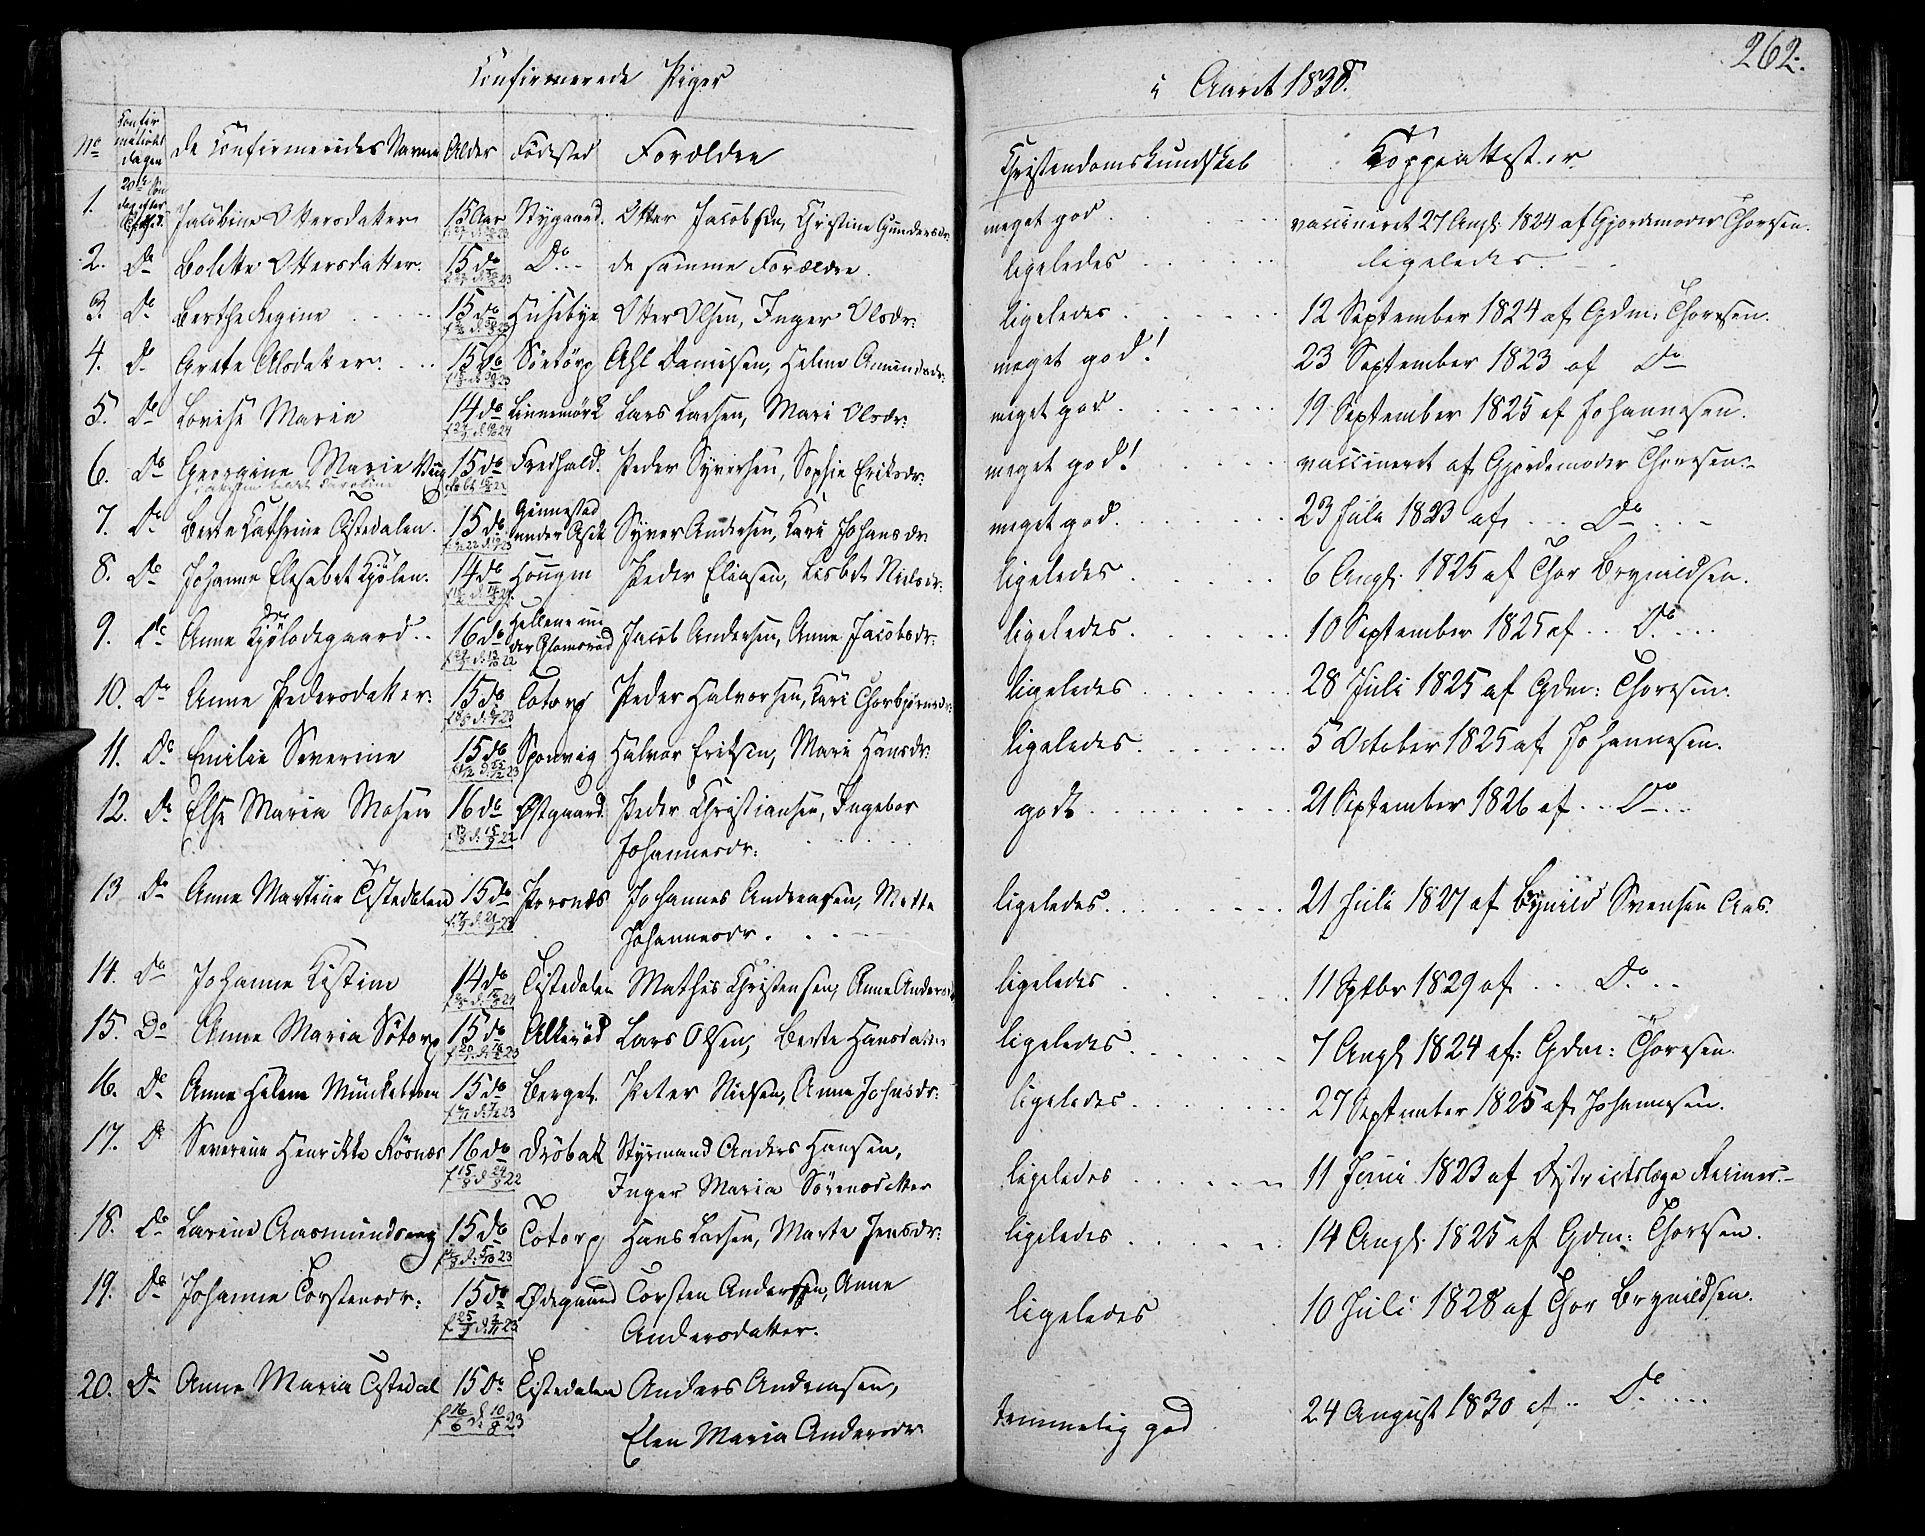 Confirmerede Piger
i Aaret 1838.
262.
No Confirmations dagen De Confirmeredes Navne Alder Fødested Forældre Christendomskundskab Koppeattester
1. 20de Søndag efter Jacobine Ottersdatter 15 Aar Nygaard. Otter Jacobsen, Christine Gundersdr. meget god vaccineret 27 Augs: 1824 af Gjordemoder Thoresen.
2. Do Bolette Ottersdatter. 15 do Do de samme Forældre. ligeledes ligeledes.
3. Do Berthe Regine 15 do Husebye Otter Olsen, Inger Olsdr: ligeledes 12 September 1824 af Gdm: Thoresen.
4. Do Grete Olsdatter. 15 do Sörtörp Danielsen, Helene Amundsdr: meget god! 23 September 1823 af Do
5. Do Lovise Maria 14 do Linnemörk Lars Larsen, Mari Olsdr: meget god. 19 September 1825 af Johannesen.
6. Do Georgine Marie 15 do Fredhald. Peder Syversen, Sophie Eriksdr: meget god! vaccineret af Gjordemoder Thoresen.
7. Do Berte Kathrine Tistedalen. 15 do Gimmestad under Asak Syver Andersen, Kari Johansdr meget god. 23 Juli 1823 af Do
8. Do Johanne Elisabet Kjölen. 14 do Hougen Peder Eliasen, Lisbet Nielsdr: ligeledes 6 Augs: 1825 af Thor Brynildsen.
9. Do Anne Kjölodegaard 16 do Hellene under Glomsröd Jacob Andersen, Anne Jacobsdr: ligeledes. 10 September 1825 af Do
10. Do Anne Pedersdatter. 15 do Totorp Peder Halvorsen, Kari Thorbjørnsdr: ligeledes 28 Juli 1825 af Gdm: Thoresen.
11. Do Emilie Severine 15 do Sponvig Halvor Eriksen, Mari Hansdr: ligeledes. 5 October 1825 af Johannesen.
12. Do Else Maria Mosen 16 do Østgaard Peder Christiansen, Ingebor
Johannesdr: godt 21 September 1826 af Do
13 Do Anne Martine Tistedalen 15 do Porsnes Johannes Andreasen, Mette
Johannesdr. ligeledes. 21 Juli 1827 af Brynild Svensen Aas.
14. Do Johanne Kistine 14 do Tistedalen Mathis Christensen, Anne Andersdr ligeledes 11 Sptbr 1829 af Do
15. Do Anne Maria Sötorp 15 do Alkeröd Lars Olsen, Berte Hansdatter ligeledes. 7 Augs 1824 af: Gdm: Thoresen.
16. Do Anne Helene 15 do Berget. Peter Nielsen, Anne Johnsdr: ligeledes. 27 September 1825 af Johannesen.
17. Do Severine Henrikke Rösnes 16 do Dröbak Styrmand Anders Hansen,
Inger Maria Sörensdatter ligeledes 11 Juni 1823 af Districtslæge
18. Do Larine Aasmundseng 15 do Totorp Hans Larsen, Marte Jensdr: ligeledes 14 Augs: 1825 af Gdm: Thoresen.
19. Do Johanne Torstensdr: 15 do Ødegaard Torsten Andersen, Anne
Andersdatter. ligeledes 10 Juli 1828 af Thor Brynildsen.
20. Do Anne Maria Tistedal 15 Do Tistedalen Anders Andreasen,
Elen Maria Andersdr temmelig god 24 August 1830 af Do